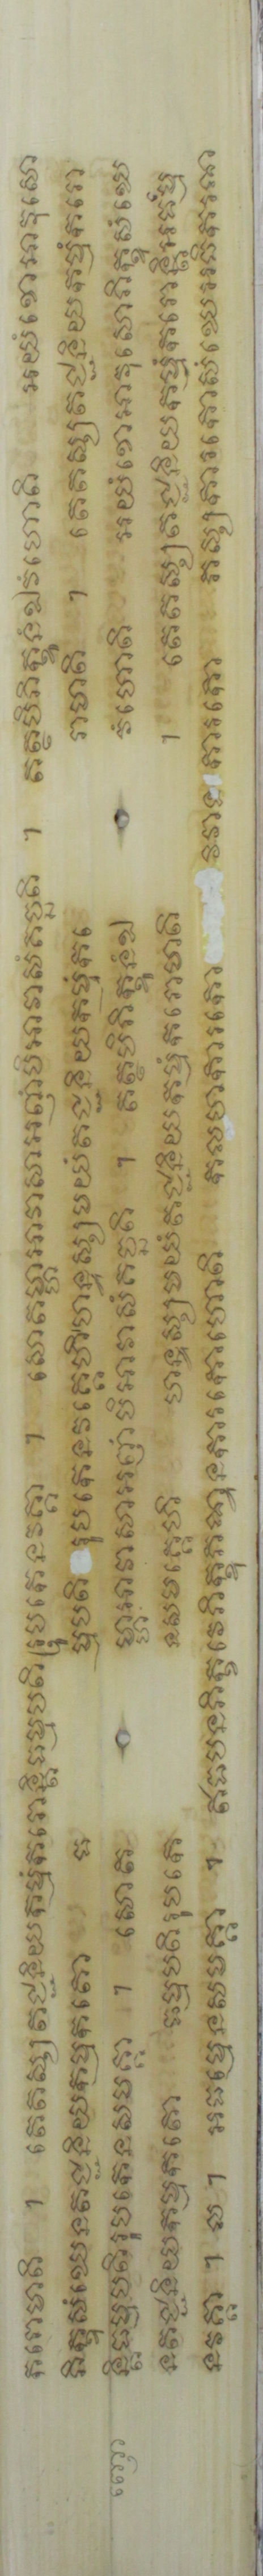 ករោមាតិ ។ តេតស្សតជ្ជនិយកម្មំករោន្តិធម្មបតិរូបកេនវគ្គា ។ សោតម្ហាអាវាសាអញ្ញំបិអាវាសំគច្ឆតិ ។ តត្ថបិភិក្ខូនំឯវំហោតិ អយំខោអាវុសោ
ភិក្ខុសំឃេនតជ្ជនិយកម្មកតោ ធ ម្មបតិ រូបកេនវគ្គេហិហន្ទស្សមយំតជ្ជនិយកម្មំក រោមាតិ ។ តេតស្សតជ្ជនិយកម្មំករោ
ញោ ន្តិធម្មបតិរូបកេនសមគ្គា ។ សោត ម្ហាអាវាសាអញ្ញំបិអាវាសំគច្ឆតិ ។ តត្ថបិភិក្ខូនំឯ វំហោតិ អយំខោអាវុសោភិក្ខុសំឃេ
នតជ្ជនិយកម្មកតោ ធម្មបតិរូបកេ នសមគ្គេហិ ហន្ទស្សមយំតជ្ជនិយកម្មំករោមាតិ ។ តេតស្សតជ្ជនិយកម្មំករោន្តិអធម្មេ
នវគ្គា ។ ល ។ អធម្មេនសមគ្គា ។ ឥធបនភិក្ខវេភិក្ខុភណ្ឌនការកោហោតិ កលហការកោ វិវាទការកោ ភស្សការកោសំឃេអធិករណ